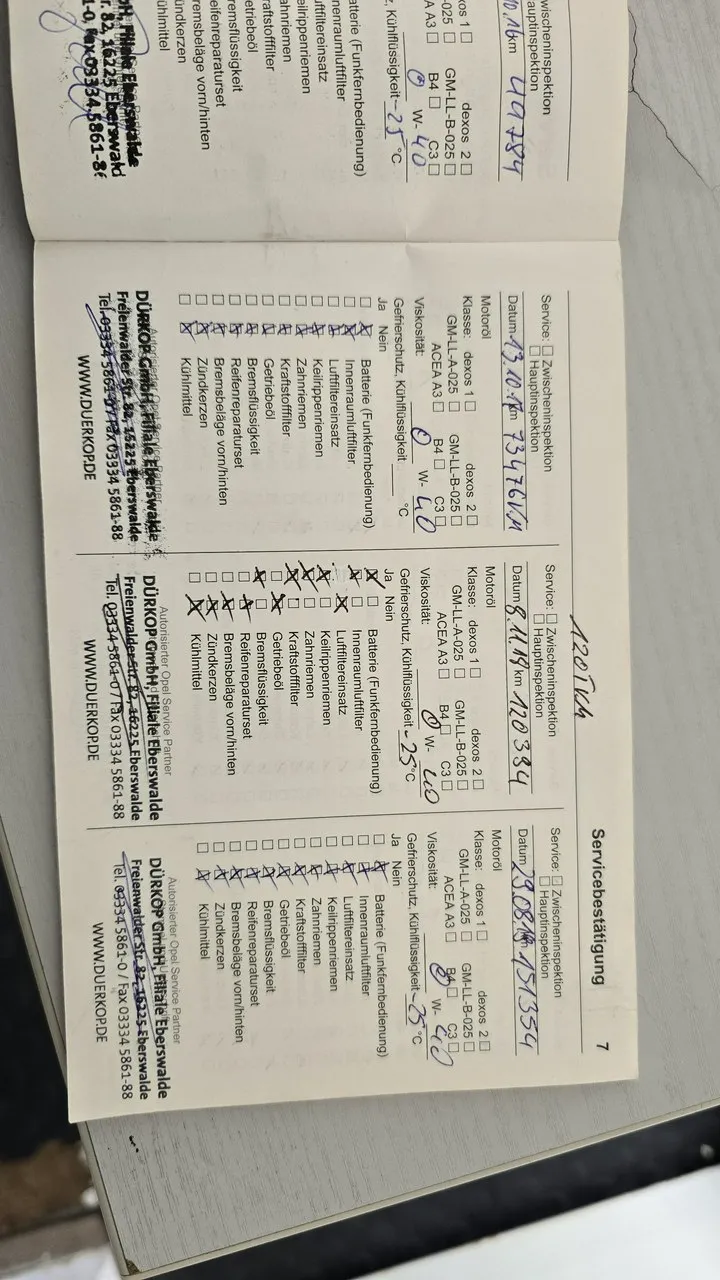 Servicebestätigung 7
wischeninspektion
auptinspektion
10.16 km 49784
dexos 2
GM-LL-B-025
B4 C3
W- 40
Kühlflüssigkeit -25 °C
atterie (Funkfernbedienung)
nenraumluftfilter
uftfiltereinsatz
eilrippenriemen
ahnriemen
raftstofffilter
etriebeöl
remsflüssigkeit
eifenreparaturset
remsbeläge vorn/hinten
ündkerzen
ühlmittel
Filiale Eberswalde
r. 82, 16225 Eberswald
1-0, Fax 03334 5861-8
Service: Zwischeninspektion
Hauptinspektion
Datum 13.10.17 km 73476 KM
Motoröl
Klasse: dexos 1 dexos 2
GM-LL-A-025 GM-LL-B-025
ACEA A3 B4 C3
Viskosität: 0 W- 40
Gefrierschutz, Kühlflüssigkeit °C
Ja Nein
Batterie (Funkfernbedienung)
Innenraumluftfilter
Luftfiltereinsatz
Keilrippenriemen
Zahnriemen
Kraftstofffilter
Getriebeöl
Bremsflüssigkeit
Reifenreparaturset
Bremsbeläge vorn/hinten
Zündkerzen
Kühlmittel
Autorisierter Opel Service Partner
DÜRKOP GmbH, Filiale Eberswalde
Freienwalder Str. 82, 16225 Eberswalde
Tel. 03334 5861-0 / Fax 03334 5861-88
WWW.DUERKOP.DE
120TKM
Service: Zwischeninspektion
Hauptinspektion
Datum 8.11.18 km 120384
Motoröl
Klasse: dexos 1 dexos 2
GM-LL-A-025 GM-LL-B-025
ACEA A3 B4 C3
Viskosität: 0 W- 40
Gefrierschutz, Kühlflüssigkeit -25 °C
Ja Nein
Batterie (Funkfernbedienung)
Innenraumluftfilter
Luftfiltereinsatz
Keilrippenriemen
Zahnriemen
Kraftstofffilter
Getriebeöl
Bremsflüssigkeit
Reifenreparaturset
Bremsbeläge vorn/hinten
Zündkerzen
Kühlmittel
Autorisierter Opel Service Partner
DÜRKOP GmbH, Filiale Eberswalde
Freienwalder Str. 82, 16225 Eberswalde
Tel. 03334 5861-0 / Fax 03334 5861-88
WWW.DUERKOP.DE
Service: Zwischeninspektion
Hauptinspektion
Datum 29.08.19 151354
Motoröl
Klasse: dexos 1 dexos 2
GM-LL-A-025 GM-LL-B-025
ACEA A3 B4 C3
Viskosität: 0 W- 40
Gefrierschutz, Kühlflüssigkeit -25 °C
Ja Nein
Batterie (Funkfernbedienung)
Innenraumluftfilter
Luftfiltereinsatz
Keilrippenriemen
Zahnriemen
Kraftstofffilter
Getriebeöl
Bremsflüssigkeit
Reifenreparaturset
Bremsbeläge vorn/hinten
Zündkerzen
Kühlmittel
Autorisierter Opel Service Partner
DÜRKOP GmbH, Filiale Eberswalde
Freienwalder Str. 82, 16225 Eberswalde
Tel. 03334 5861-0 / Fax 03334 5861-88
WWW.DUERKOP.DE